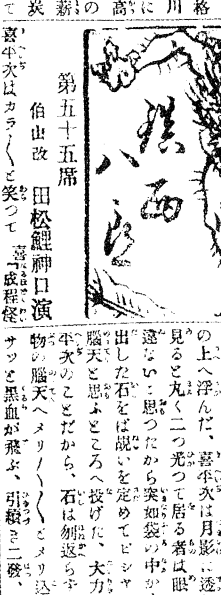 鎮西
八郎
第五十五席
伯山改 田松鯉神口演
喜平次はカラ〳〵と笑つて 喜『成程怪
の上へ浮んだ、喜平次は月影に透
見ると丸く二つ光つて居る者は眼
違ないと思つたから突如袋の中か
出した石をば覘いを定めてピシャ
腦天と思ふところへ投げた、大力
平次のことだから、石は刎返らず
物の腦天へメリ〳〵〳〵とメリ込
サッと黒血が飛ぶ、引續き二發、